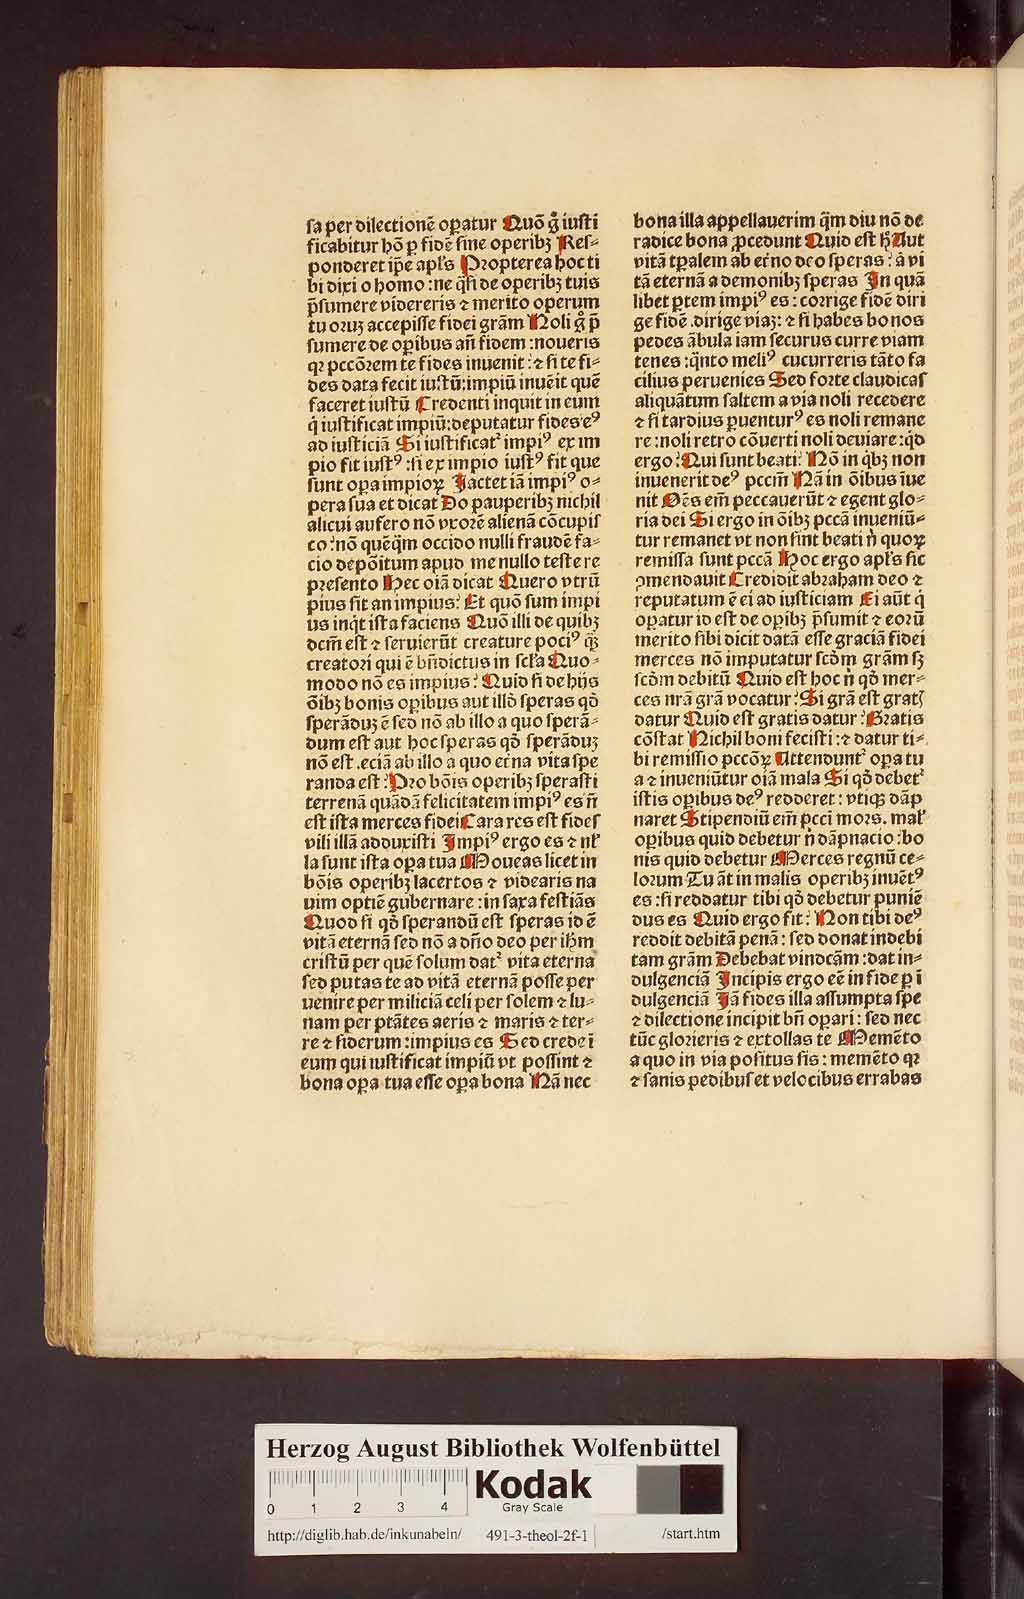 sa per dilectionē operatur Quō gͦ iusti
ficabitur hō p fidē sine operibꝫ Res⸗
ponderet ip̄e apl̄s Propterea hoc ti
bi dixi o homo : ne qͣsi de operibꝫ tuis
p̄sumere videreris ⁊ merito operum
tuoruꝫ accepisse fidei gr̄am Noli gͦ p̄
sumere de oꝑibus an̄ fidem : noueris
qꝛ pccōrem te fides inuenit : ⁊ si te fi⸗
des data fecit iustū : impiū inuēit quē
faceret iustū Credenti inquit in eum
q̇ iustificat impiū : deputatur fides eꝰ
ad iusticiā Si iustificatᷣ impiꝰ ex im
pio fit iustꝰ : si ex impio iustꝰ fit que
sunt oꝑa impioꝝ Jactet iā impiꝰ o⸗
pera sua et dicat Do pauperibꝫ nichil
alicui aufero nō vxorē alienā cōcupis
co : nō quēq̄m occido nulli fraudē fa⸗
cio depōitum apud me nullo teste re
presento Hec oīā dicat Quero vtrū
pius sit an impius : Et quō sum impi
us inqͥt ista faciens Quō illi de quibꝫ
dcm̄ est ⁊ seruierūt creature pociꝰ qͣꝫ
creatori qui ē bn̄dictus in scl̄a Quo⸗
modo nō es impius : Quid si de hijs
ōibꝫ bonis oꝑibus aut illō speras qd̄
sperāduꝫ ē sed nō ab illo a quo sperā⸗
dum est aut hoc speras qd̄ sperāduꝫ
nō est . eciā ab illo a quo et̄na vita spe
randa est : Pro bōis operibꝫ sperasti
terrenā quādā felicitatem impiꝰ es n̄
est ista merces fidei Cara res est fides
vili illā adduxisti Impiꝰ ergo es ⁊ nl̄
la sunt ista oꝑa tua Moueas licet in
bōis operibꝫ lacertos ⁊ videaris na
uim optiē gubernare : in saxa festiās
Quod si qd̄ sperandū est speras id ē
vitā eternā sed nō a dn̄o deo per ihm̄
cristū per quē solum datᷣ vita eterna
sed putas te ad vitā eternā posse per
uenire per miliciā celi per solem ⁊ lu⸗
nam per ptātes aeris ⁊ maris ⁊ ter⸗
re ⁊ siderum : impius es Sed crede ī
eum qui iustificat impiū vt possint ⁊
bona oꝑa tua esse oꝑa bona Nā nec
bona illa appellauerim q̄m diu nō de
radice bona ꝓcedunt Quid est h̄ Aut
vitā tꝑalem ab et̄no deo speras : a vi
tā eternā a demonibꝫ speras In quā
libet ꝑtem impiꝰ es : corrige fidē diri
ge fidē . dirige viaꝫ : ⁊ si habes bonos
pedes ābula iam securus curre viam
tenes : qͣnto meliꝰ cucurreris tāto fa
cilius peruenies Sed forte claudicas
aliquātum saltem a via noli recedere
⁊ si tardius ꝑuenturꝰ es noli remane
re : noli retro cōuerti noli deuiare : qd̄
ergo : Qui sunt beati : Nō in qͥbꝫ non
inuenerit deꝰ pccm̄ Nā in ōibus īue
nit Oēs em̄ peccauerūt ⁊ egent glo⸗
ria dei Si ergo in ōibꝫ pccā inueniū⸗
tur remanet vt non sint beati n̄ quoꝝ
remissa sunt pccā Hoc ergo apl̄s sic
ꝯmendauit Credidit abraham deo ⁊
reputatum ē ei ad iusticiam Ei aūt q̇
oꝑatur id est de oꝑibꝫ p̄sumit ⁊ eorū
merito sibi dicit datā esse graciā fidei
merces nō imputatur scd̄m gr̄am sꝫ
scd̄m debitū Quid est hoc n̄ qd̄ mer⸗
ces nr̄a gr̄a vocatur : Si gr̄a est gratꝭ
datur Quid est gratis datur : Gratis
cōstat Nichil boni fecisti : ⁊ datur ti⸗
bi remissio pccōꝝ Attenduntᷣ oꝑa tu
a ⁊ inueniūtur oīā mala Si qd̄ debetᷣ
istis oꝑibus deꝰ redderet : vtiqꝫ dāp
naret Stipendiū em̄ pccī mors . mal̄
oꝑibus quid debetur n̄ dāpnacio : bo
nis quid debetur Merces regnū ce⸗
lorum Tu āt in malis operibꝫ inuētꝰ
es : si reddatur tibi qd̄ debetur puniē
dus es Quid ergo fit : Non tibi deꝰ
reddit debitā penā : sed donat indebi
tam gr̄am Debebat vindcām : dat in⸗
dulgenciā Incipis ergo eē in fide ꝑ ī
dulgenciā Jā fides illa assumpta spe
⁊ dilectione incipit bn̄ oꝑari : sed nec
tūc glorieris ⁊ extollas te Memēto
a quo in via positus sis : memēto qꝛ
⁊ sanis pedibus et velocibus errabas
Herzog August Bibliothek Wolfenbüttel
Kodak
Gray Scale
0 1 2 3 4
http://diglib.hab.de/inkunabeln/ 491-3-theol-2f-1 /start.htm